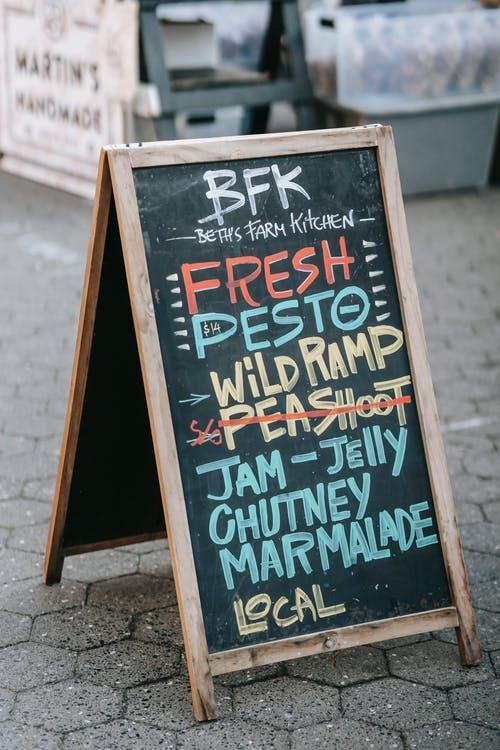 MARTIN'S
HANDMADE
BFK
BETH'S FARM KITCHEN
FRESH
$14
PESTO
→ WILD RAMP
PEASHOOT
JAM - JELLY
CHUTNEY
MARMALADE
LOCAL